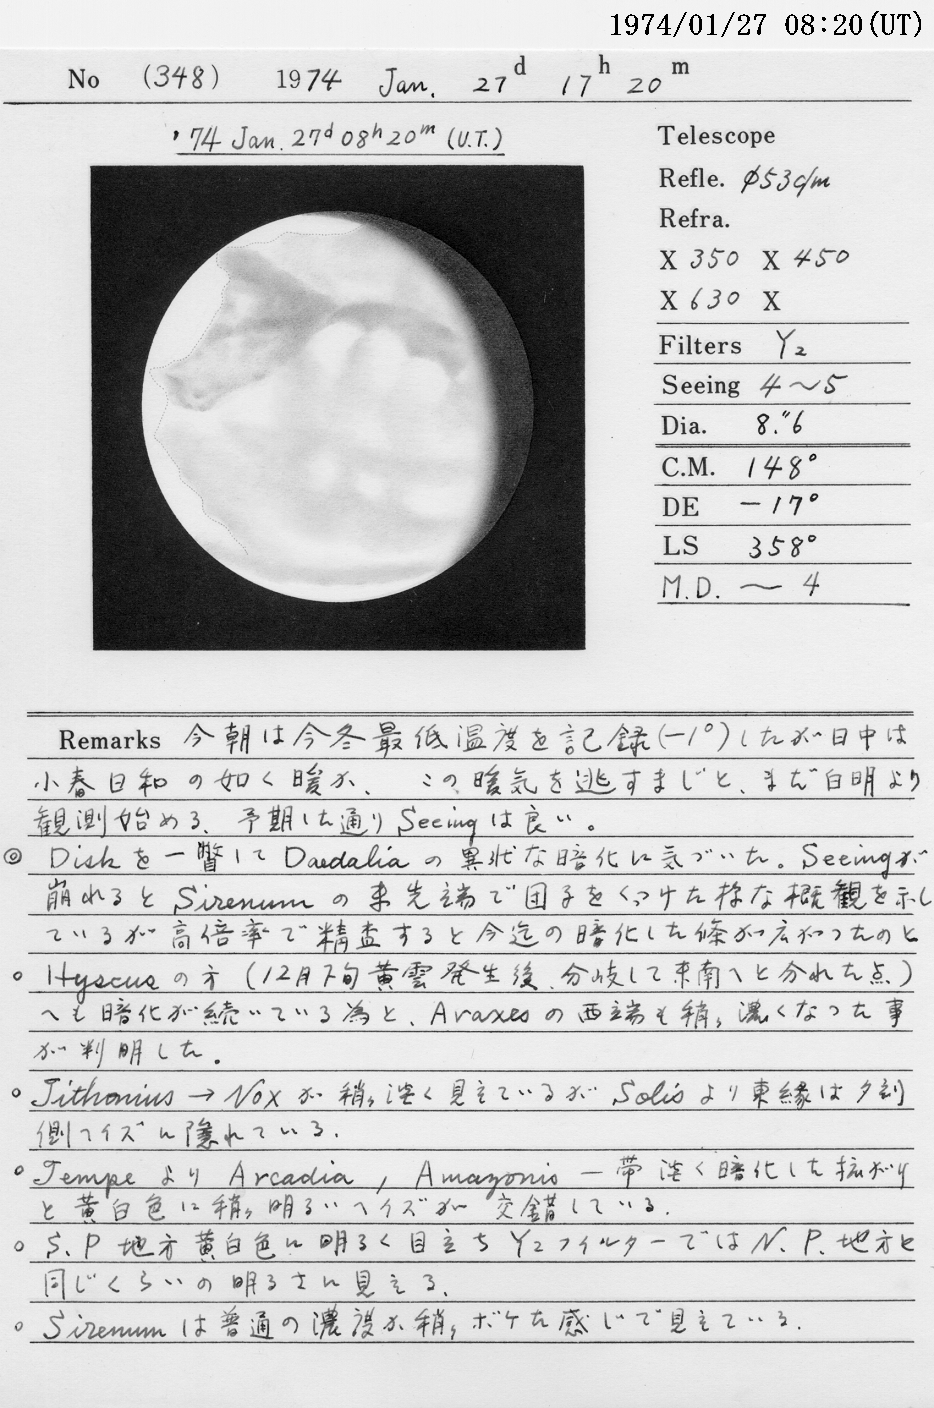 1974/01/27 08:20(UT)
No (348) 1974 Jan. 27d 17h 20m
'74 Jan. 27d 08h 20m (U.T.)
Telescope
Refle. φ53c/m
Refra.
X 350 X 450
X 630 X
Filters Y2
Seeing 4～5
Dia. 8."6
C.M. 148°
DE －17°
LS 358°
M.D. ～ 4
Remarks 今朝は今冬最低温度を記録(－1°)したが日中は
小春日和の如く暖か、この暖気を逃すまじと、まだ白明より
観測始める、予期した通りSeeingは良い。
◎ Diskを一瞥してDaedaliaの異状な暗化に気づいた。Seeingが
崩れるとSirenumの東先端で団子をくっつけた様な概観を示し
ているが高倍率で精査すると今迄の暗化した條が広がったのと
○ Hyscusの方(12月下旬黄雲発生後、分岐して東南へと分れた点)
へも暗化が続いている為と、Araxesの西端も稍々濃くなった事
が判明した。
○ Tithonius → Noxが稍々淡く見えているがSolisより東縁は夕刻
側ヘイズに隠れている.
○ TempeよりArcadia, Amazonis一帯淡く暗化した拡がり
と黄白色に稍々明るいヘイズが交錯している.
○ S.P地方黄白色に明るく目立ちY2フィルターではN.P.地方と
同じくらいの明るさに見える.
○ Sirenumは普通の濃度が稍々ボケた感じで見えている.